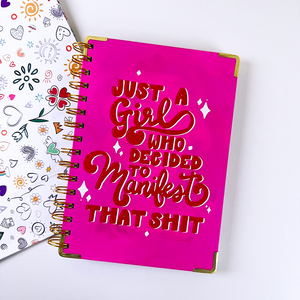 JUST A
Girl
WHO
DECIDED
TO
Manifest
THAT SHIT